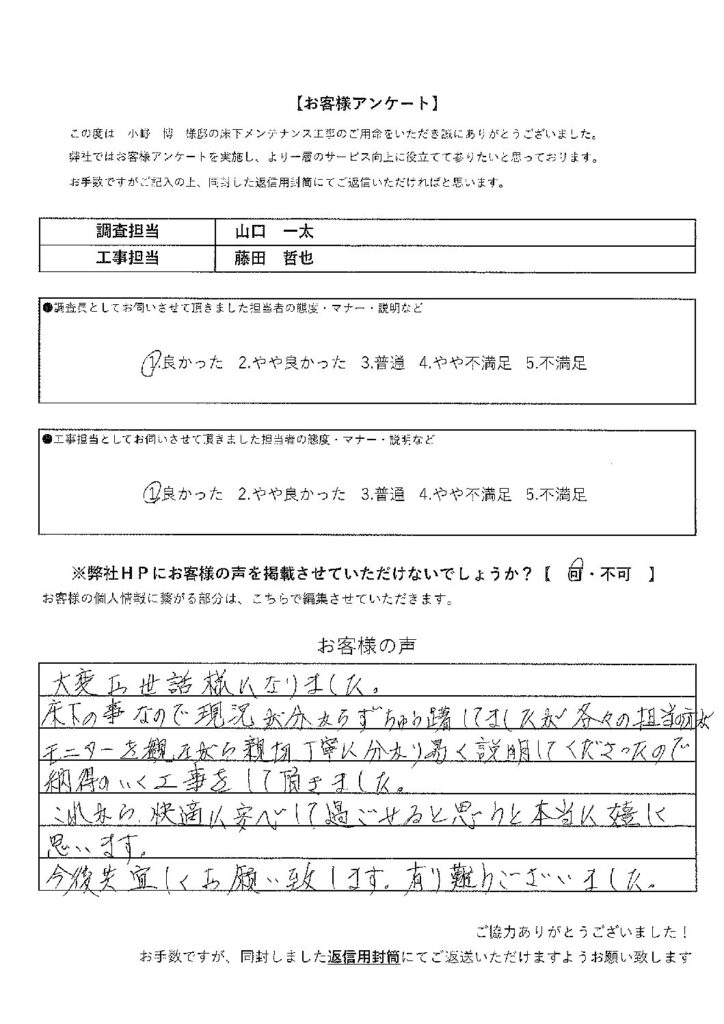 【お客様アンケート】
この度は 小野 博 様邸の床下メンテナンス工事のご用命をいただき誠にありがとうございました。
弊社ではお客様アンケートを実施し、より一層のサービス向上に役立てて参りたいと思っております。
お手数ですがご記入の上、同封した返信用封筒にてご返信いただければと思います。
調査担当 山口 一太
工事担当 藤田 哲也
●調査員としてお伺いさせて頂きました担当者の態度・マナー・説明など
1.良かった 2.やや良かった 3.普通 4.やや不満足 5.不満足
●工事担当としてお伺いさせて頂きました担当者の態度・マナー・説明など
1.良かった 2.やや良かった 3.普通 4.やや不満足 5.不満足
※弊社HPにお客様の声を掲載させていただけないでしょうか?【 可・不可 】
お客様の個人情報に繋がる部分は、こちらで編集させていただきます。
お客様の声
大変お世話様になりました。
床下の事なので現況が分からずちゅう躇してましたが各々の担当の方が
モニターを観ながら親切丁寧に分かり易く説明してくださったので
納得のいく工事をして頂きました。
これから快適に安心して過ごせると思うと本当に嬉しく
思います。
今後共宜しくお願い致します。有り難うございました。
ご協力ありがとうございました!
お手数ですが、同封しました返信用封筒にてご返送いただけますようお願い致します